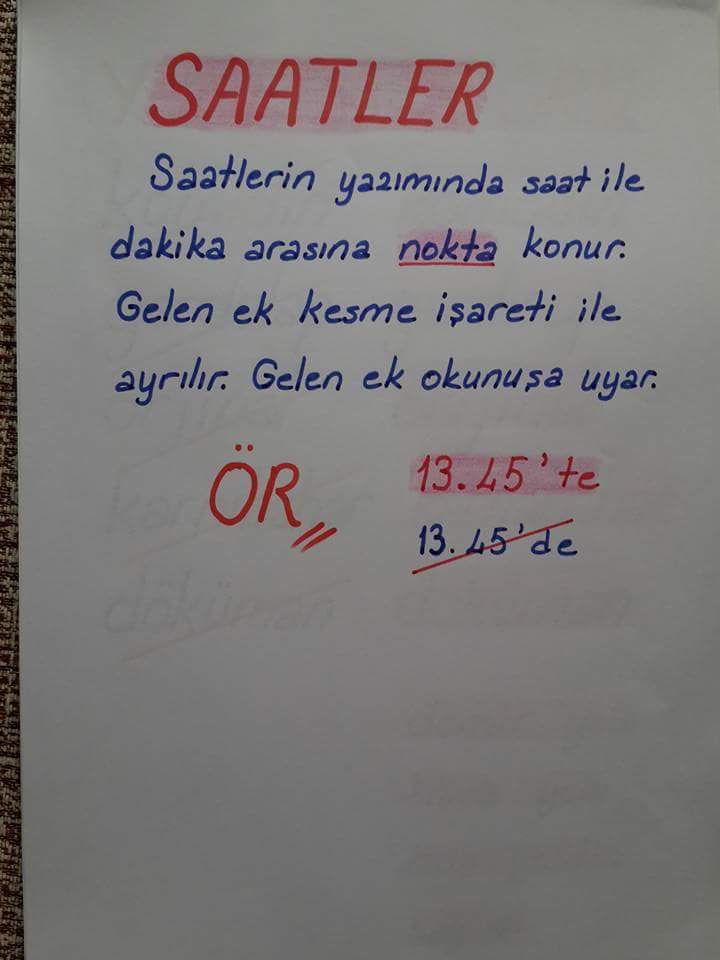 SAATLER
Saatlerin yazımında saat ile
dakika arasına nokta konur.
Gelen ek kesme işareti ile
ayrılır. Gelen ek okunuşa uyar.
ÖR
13.45'te
13.45'de
döküman